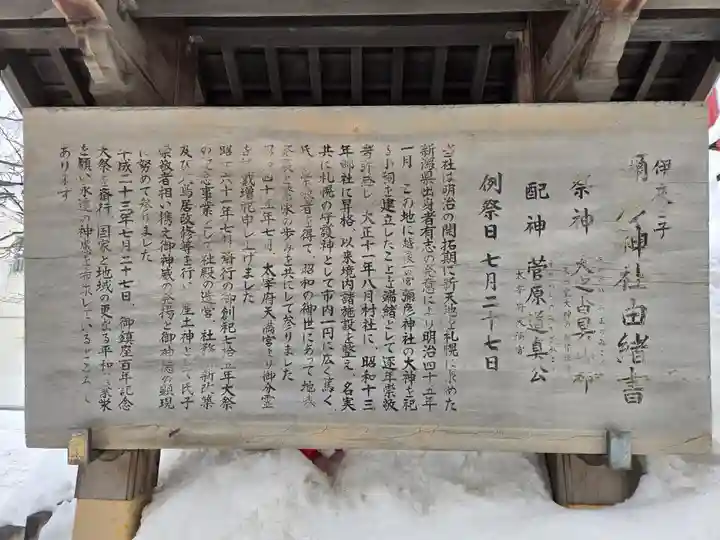 伊夜日子
彌彦神社由緒書
祭神
配神 菅原道真公
太宰府天満宮
例祭日 七月二十七日
当社は明治の開拓期に新天地を札幌に求めた
新潟県出身者有志の発意により明治四十五年
一月、この地に越後一宮彌彦神社の大神を祀
る小祠を建立したことを端緒として逐年崇敬
者許無し、大正十一年八月村社に、昭和十三
年郷社に昇格、以来境内諸施設を整え、名実
共に札幌の守護神として市内一円に広く篤く
崇敬者を得て、昭和の御世にあって地域
の歩みを共にして参りました
四十五年七月、太宰府天満宮より御分霊
を 戴増祀申し上げました
昭和六十一年七月 斎行の御創祀七十五年大祭
の記念事業として社殿の造営、社務 新改築
及び 鳥居改修等を行い、産土神として氏子
崇敬者相い携え御神威の発揚と御神徳の顕現
に努めて参りました
平成二十三年七月二十七日、御鎮座百年記念
大祭を斎行、国家と地域の更なる平和 栄
を願い永遠の神威を希求しているところ
あります